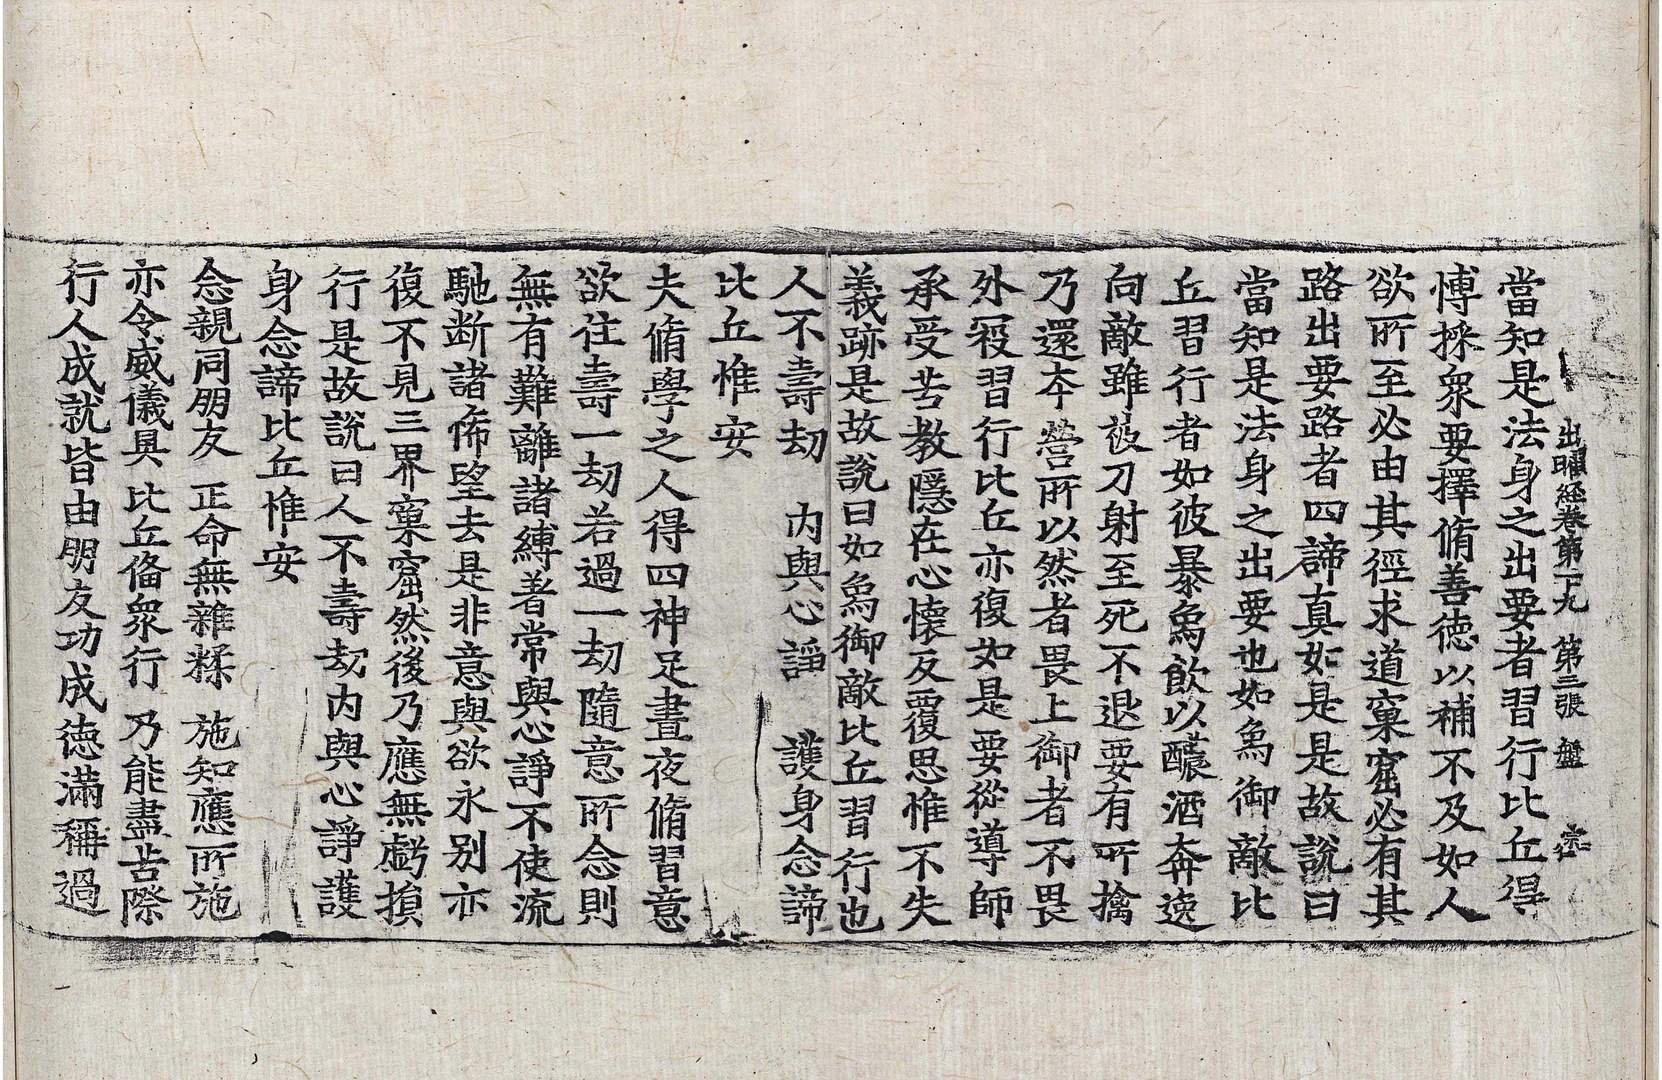 當知是法身之出要者習行比丘得
出曜經卷第二十九 第三張 盤 宗
博採衆要擇脩善德以補不及如人
欲所至必由其徑求道窠窟必有其
路出要路者四諦真如是是故說曰
當知是法身之出要也如象御敵比
丘習行者如彼暴象飲以醲酒奔逸
向敵雖被刀射至死不退要有所擒
乃還本營所以然者畏上御者不畏
外寇習行比丘亦復如是要從導師
承受苦教隱在心懷反覆思惟不失
義跡是故說曰如象御敵比丘習行也
人不壽劫 內與心諍 護身念諦
比丘惟安
夫脩學之人得四神足晝夜脩習意
欲住壽一劫若過一劫隨意所念則
無有難離諸縛著常與心諍不使流
馳斷諸悕望去是非意與欲永別亦
復不見三界窠窟然後乃應無虧損
行是故說曰人不壽劫內與心諍護
身念諦比丘惟安
念親同朋友 正命無雜糅 施知應所施
亦令威儀具 比丘備衆行 乃能盡苦際
行人成就皆由朋友功成德滿稱過